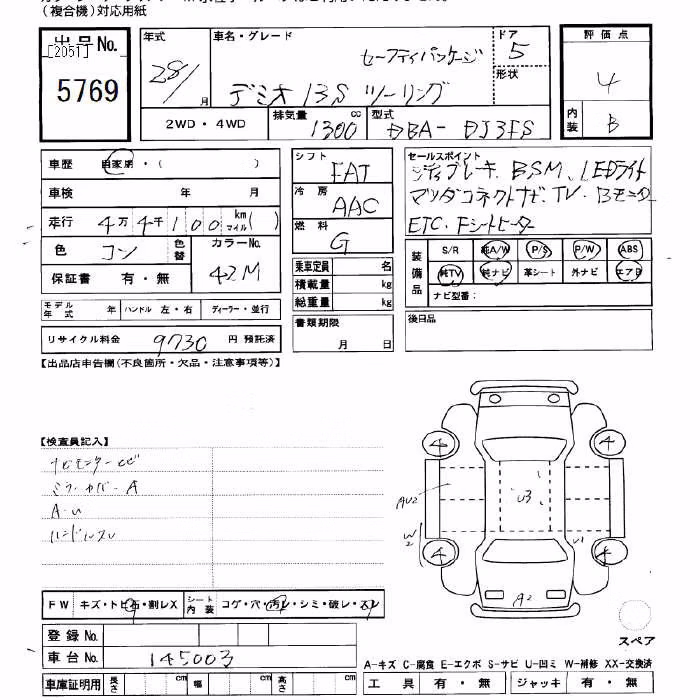 （複合機）対応用紙
出品No.
[2051]
5769
年式
28/
月
車名・グレード
セーフティパッケージ
デミオ 13S ツーリング
ドア
5
形状
評価点
4
内装
B
2WD・4WD
排気量
1300
cc
型式
DBA- DJ3FS
車歴
自家用・(　　)
車検　年　月
走行
4万4千100
km
マイル
(　)
色
コン
色替
カラーNo.
42M
保証書　有・無
モデル年式　年
ハンドル　左・右
ディーラー・並行
リサイクル料金
9730
円 預託済
シフト
FAT
冷房
AAC
燃料
G
乗車定員　名
積載量　kg
総重量　kg
書類期限
月　日
セールスポイント
シティブレーキ、BSM、LEDライト
マツダコネクトナビ、TV・Bモニター
ETC・Fシートヒーター
装備品
S/R
純A/W
P/S
P/W
ABS
純TV
純ナビ
革シート
外ナビ
エアB
ナビ型番：
後日品
【出品店申告欄(不良箇所・欠品・注意事項等)】
【検査員記入】
ナビモニターサビ
ミラーカバーA
A-U
ハンドルスレ
FW
キズ・トビ石・割レX
シート内装
コゲ・穴・汚レ・シミ・破レ・スレ
登録No.
車台No.
145003
車庫証明用
長さ　cm
幅　cm
高さ　cm
4
4
AU2
U3
W2
U1
4
4
A2
スペア
A-キズ C-腐食 E-エクボ S-サビ U-凹ミ W-補修 XX-交換済
工具　有・無
ジャッキ　有・無